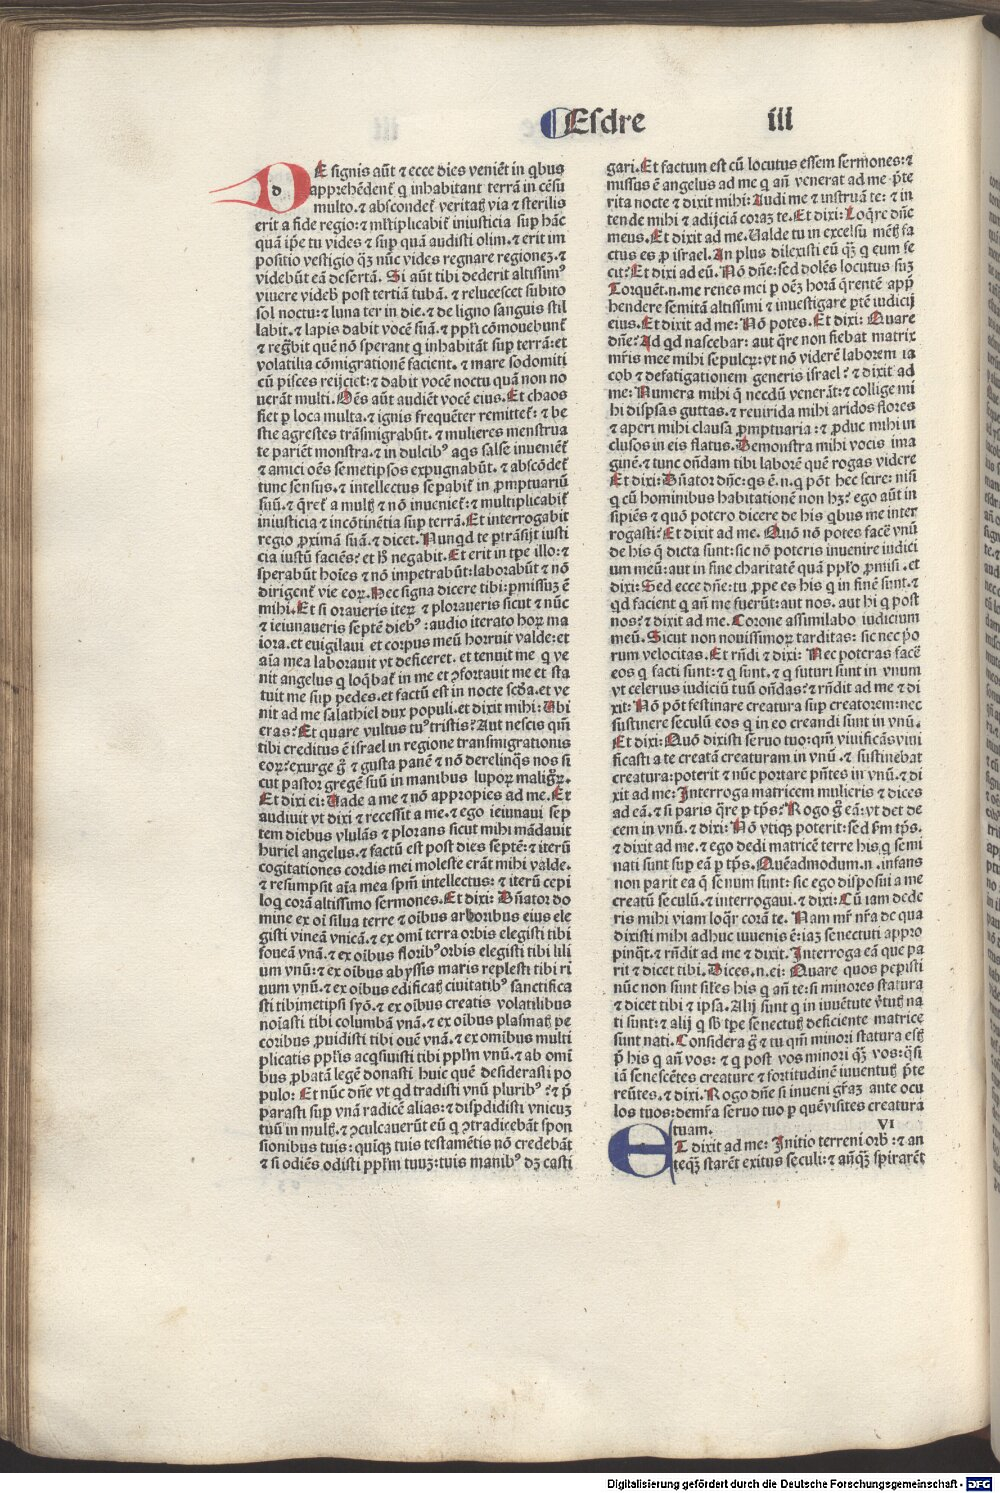 Esdre iii
DE signis aūt ⁊ ecce dies veniēt in qbus
apprehēdent᷑ q̄ inhabitant terrā in cēsu
multo. ⁊ abscondet᷑ veritatꝭ via ⁊ sterilis
erit a fide regio: ⁊ ml̓tiplicabit᷑ iniusticia suꝑ hāc
quā ip̄e tu vides ⁊ suꝑ quā audisti olim. ⁊ erit im
positio vestigio qꝫ nūc vides regnare regionez. ⁊
videbūt eā desertā. Si aūt tibi dederit altissimꝰ
viuere videbꝭ post tertiā tubā. ⁊ relucescet subito
sol noctu: ⁊ luna ter in die. ⁊ de ligno sanguis stil
labit. ⁊ lapis dabit vocē suā. ⁊ pp̄li cōmouebunt᷑
⁊ regͣbit quē nō sperant q̄ inhabitāt suꝑ terrā: et
volatilia cōmigrationē facient. ⁊ mare sodomiti
cū pisces reijciet: ⁊ dabit vocē noctu quā non no
uerāt multi. Oēs aūt audiēt vocē eius. Et chaos
fiet ꝑ loca multa. ⁊ ignis frequēter remittet᷑: ⁊ be
stie agrestes trāsmigrabūt. ⁊ mulieres menstrua
te pariēt monstra. ⁊ in dulcibꝰ aqͥs salse inueniēt᷑
⁊ amici oēs semetipsos expugnabūt. ⁊ abscōdet᷑
tunc sensus. ⁊ intellectus sepabit᷑ in ꝓmptuariū
suū. ⁊ q̄ret᷑ a multꝭ ⁊ nō inueniet᷑: ⁊ multiplicabit᷑
iniusticia ⁊ incōtinētia suꝑ terrā. Et interrogabit
regio ꝓximā suā. ⁊ dicet. Nunqͥd te ꝑtrāsijt iusti
cia iustū faciēs? et hͦ negabit. Et erit in tꝑe illo: ⁊
sperabūt hoīes ⁊ nō impetrabūt: laborabūt ⁊ nō
dirigent᷑ vie eoꝝ. Hec signa dicere tibi: ꝑmissuz ē
mihi. Et si oraueris iteꝝ ⁊ ploraueris sicut ⁊ nūc
⁊ ieiunaueris septē diebꝰ: audio iterato hoꝝ ma
iora. et euigilaui et corpus meū horruit valde: et
aīa mea laborauit vt deficeret. et tenuit me q̄ ve
nit angelus q̄ loqͣbat᷑ in me et ꝯfortauit me et sta
tuit me suꝑ pedes. et factū est in nocte scd̄a. et ve
nit ad me salathiel dux populi. et dixit mihi: Ubi
eras? Et quare vultus tuꝰ tristis? Aut nescis qm̄
tibi creditus ē israel in regione transmigrationis
eoꝝ? exurge g̊ ⁊ gusta panē ⁊ nō derelinqͣs nos si
cut pastor gregē suū in manibus lupoꝝ maligͦꝝ.
Et dixi ei: Uade a me ⁊ nō appropies ad me. Et
audiuit vt dixi ⁊ recessit a me. ⁊ ego ieiunaui sep
tem diebus vlulās ⁊ plorans sicut mihi mādauit
huriel angelus. ⁊ factū est post dies septē: ⁊ iterū
cogitationes cordis mei moleste erāt mihi valde.
⁊ resumpsit aīa mea spm̄ intellectus: ⁊ iterū cepi
loq̄ corā altissimo sermones. Et dixi: Dn̄ator do
mine ex oī silua terre ⁊ oībus arboribus eius ele
gisti vineā vnicā. ⁊ ex omī terra orbis elegisti tibi
foueā vnā. ⁊ ex oībus floribꝰ orbis elegisti tibi lili
um vnū: ⁊ ex oībus abyssis maris replesti tibi ri
uum vnū. ⁊ ex oībus edificatꝭ ciuitatibꝰ sanctifica
sti tibimetipsi syō. ⁊ ex oībus creatis volatilibus
noīasti tibi columbā vnā. ⁊ ex oībus plasmatꝭ pe
coribus ꝓuidisti tibi ouē vnā. ⁊ ex omībus multi
plicatis pp̄lis acqͥsiuisti tibi pp̄lm vnū. ⁊ ab omī
bus ꝓbatā legē donasti huic quē desiderasti po
pulo: Et nūc dn̄e vt qd tradisti vnū pluribꝰ? ⁊ p̄
parasti suꝑ vnā radicē alias: ⁊ disꝑdidisti vnicuz
tuū in multꝭ. ⁊ ꝯculcauerūt eū q̄ ꝯtradicebāt spon
sionibus tuis: quiqꝫ tuis testamētis nō credebāt
⁊ si odiēs odisti pp̄lm tuuz: tuis manibꝰ dꝫ casti
gari. Et factum est cū locutus essem sermones: ⁊
missus ē angelus ad me q̄ an̄ venerat ad me p̄te
rita nocte ⁊ dixit mihi: Audi me ⁊ instruā te: ⁊ in
tende mihi ⁊ adijciā coraz te. Et dixi: Loq̄re dn̄e
meus. Et dixit ad me. Ualde tu in excessu mētꝭ fa
ctus es ꝓ israel. An plus dilexisti eū qꝫ q̄ eum fe
cit? Et dixi ad eū. Nō dn̄e: sed dolēs locutus suꝫ
Torquēt.n.me renes mei ꝑ oēꝫ horā q̄rentē app̄
hendere semitā altissimi ⁊ inuestigare ꝑtē iudicij
eius. Et dixit ad me: Nō potes. Et dixi: Quare
dn̄e? Ad qͥd nascebar: aut qͣre non fiebat matrix
mr̄is mee mihi sepulcꝝ: vt nō viderē laborem ia
cob ⁊ defatigationem generis israel? ⁊ dixit ad
me: Numera mihi q̄ necdū venerāt: ⁊ collige mi
hi disꝑsas guttas. ⁊ reuirida mihi aridos flores
⁊ aperi mihi clausa ꝓmptuaria: ⁊ ꝓduc mihi in
clusos in eis flatus. Demonstra mihi vocis ima
ginē. ⁊ tunc on̄dam tibi laborē quē rogas videre
Et dixi: Dn̄ator dn̄e: qͥs ē.n.q̄ pōt hec scire: nisi
q̄ cū hominibus habitationē non hꝫ? ego aūt in
sipiēs ⁊ quō potero dicere de his qͥbus me inter
rogasti? Et dixit ad me. Quō nō potes facē vnū
de his q̄ dicta sunt: sic nō poteris inuenire iudici
um meū: aut in fine charitatē quā pp̄lo ꝓmisi. et
dixi: Sed ecce dn̄e: tu ꝓpe es his q̄ in finē sunt. ⁊
qͥd facient q̄ an̄ me fuerūt: aut nos. aut hi q̄ post
nos? ⁊ dixit ad me. Corone assimilabo iudicium
meū. Sicut non nouissimoꝝ tarditas: sic nec p̄o
rum velocitas. Et rn̄di ⁊ dixi: Nec poteras facē
eos q̄ facti sunt: ⁊ q̄ sunt. ⁊ q̄ futuri sunt in vnum
vt celerius iudiciū tuū on̄das? ⁊ rn̄dit ad me ⁊ di
xit: Nō pōt festinare creatura suꝑ creatorem: nec
sustinere seculū eos q̄ in eo creandi sunt in vnū.
Et dixi: Quō dixisti seruo tuo: qm̄ viuificās viui
ficasti a te creatā creaturam in vnū. ⁊ sustinebat
creatura: poterit ⁊ nūc portare pn̄tes in vnū. ⁊ di
xit ad me: Interroga matricem mulieris ⁊ dices
ad eā. ⁊ si paris qͣre ꝑ tp̄s? Rogo g̊ eā: vt det de
cem in vnū. ⁊ dixi: Nō vtiqꝫ poterit: sed sm̄ tp̄s.
⁊ dixit ad me. ⁊ ego dedi matricē terre his q̄ semi
nati sunt suꝑ eā ꝑ tp̄s. Quēadmodum.n.infans
non parit ea q̄ senum sunt: sic ego disposui a me
creatū seculū. ⁊ interrogaui. ⁊ dixi: Cū iam dede
ris mihi viam loqͣr corā te. Nam mr̄ nr̄a de qua
dixisti mihi adhuc iuuenis ē: iaz senectuti appro
pinqͣt. ⁊ rn̄dit ad me ⁊ dixit. Interroga eā que pa
rit ⁊ dicet tibi. Dices.n.ei: Quare quos peperisti
nūc non sunt sil̓es his q̄ an̄ te: si minores statura
⁊ dicet tibi ⁊ ipsa. Alij sunt q̄ in iuuētute v̓tutꝭ na
ti sunt: ⁊ alij q̄ sb̓ tꝑe senectutꝭ deficiente matrice
sunt nati. Considera g̊ ⁊ tu qm̄ minori statura estꝭ
p̄ his q̄ an̄ vos: ⁊ q̄ post vos minori qꝫ vos: qͣsi
iā senescētes creature ⁊ fortitudinē iuuentutꝭ p̄te
reūtes. ⁊ dixi. Rogo dn̄e si inueni gr̄az ante ocu
los tuos: demr̄a seruo tuo ꝑ quē visites creatura
tuam. VI
ET dixit ad me: Initio terreni orbꝭ: ⁊ an
teqꝫ starēt exitus seculi: ⁊ an̄qꝫ spirarēt
Digitalisierung gefördert durch die Deutsche Forschungsgemeinschaft - DFG